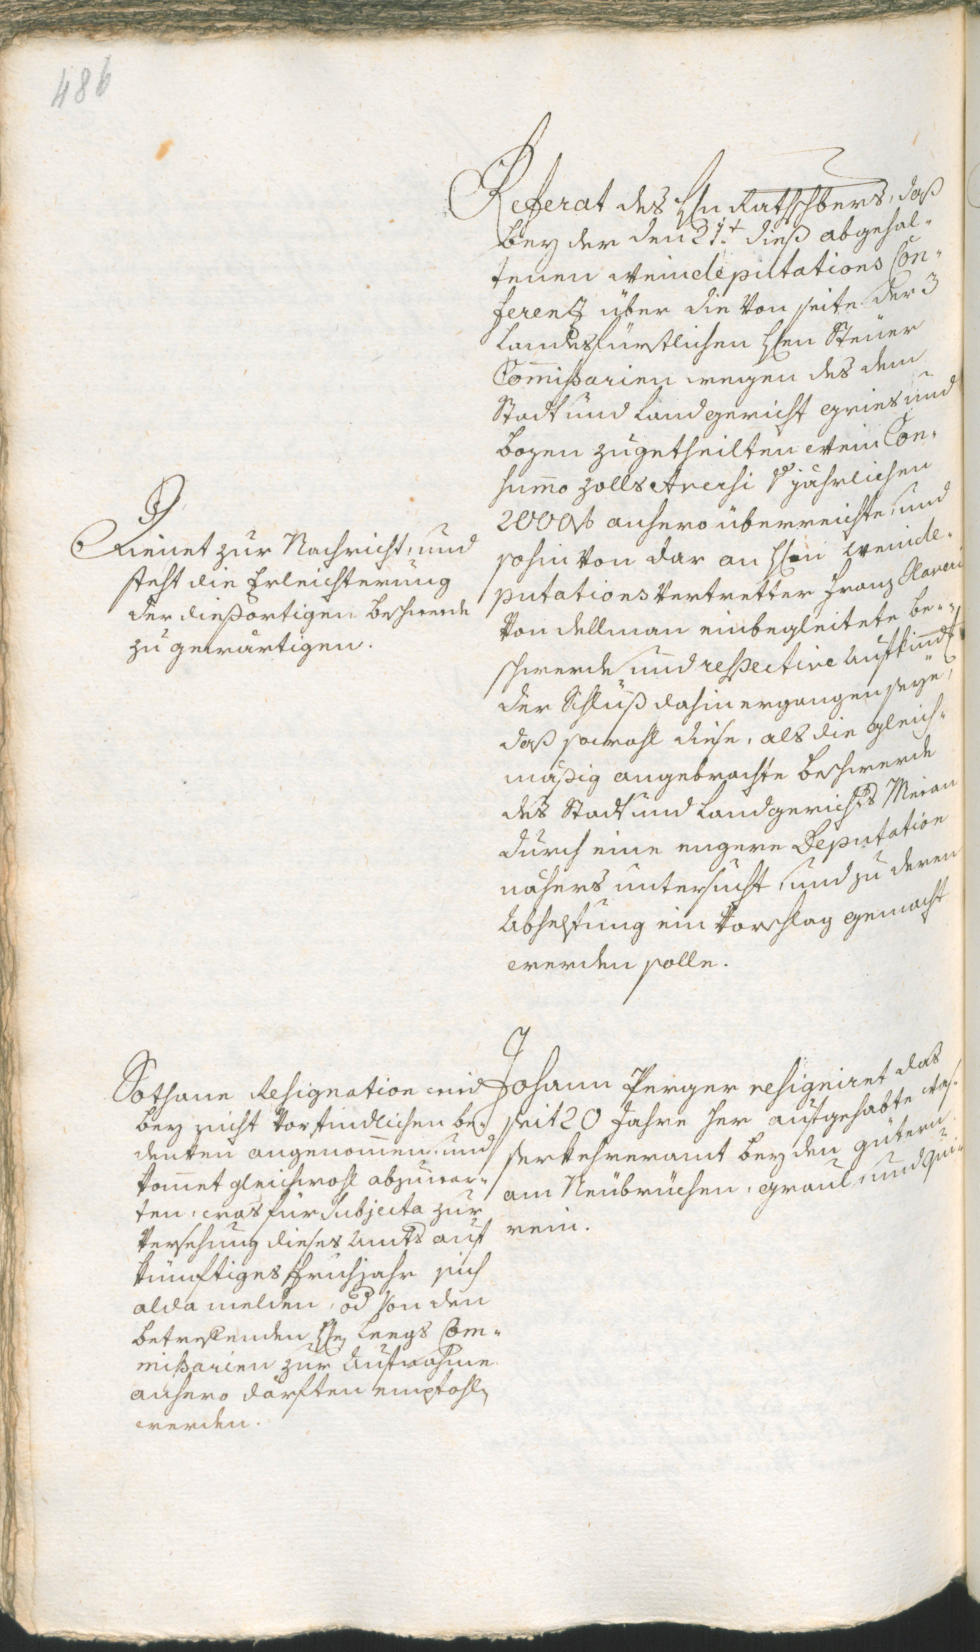 486
Referat des Hn Rathschbers, daß
bey der den 21.t dieß abgehal-
tenen weindeputations Con-
ferenz über die von seite der 3
Landesfürstlichen Hen Steüer
Com̅ißarien wegen des dem
Stadt und Landgericht gries und
bozen zugetheilten wein Con-
sum̅o zolls Aversi jährlichen
2000 f anhero überreichte, und
sohin von dar an Hen weinde-
putations Vertretter Franz
von dellman einbegleitete be-
schwerde und respective
der Schluß dahin ergangen seye,
daß sowohl diese, als die gleich-
mäßig angebrachte beschwerde
des Stadt und Landgerichts Meran
durch eine engere Deputation
nähers untersucht, und zu deren
Abhelfung ein Vorschlag gemacht
werden solle.
Dienet zur Nachricht, und
steht die Erleichterung
der dießortigen beschwerde
zu gewärtigen.
Johann Perger resigniret das
seit 20 Jahre her aufgehabte was-
serkehreramt bey den gütern
am Neübrüchen, graul, und Qui-
rein.
Sothane Resignation wird
bey nicht vorfindlichen be-
denken angenom̅en, und
kom̅et gleichwohl abzuwar-
ten, was für Subjecta zur
Versehung dieses Amts auf
künftiges Fruhjahr sich
alda melden, od von den
betreffenden Hen Leegs Com-
mißarien zur Aufnahme
anhero dörften empfohln
werden.